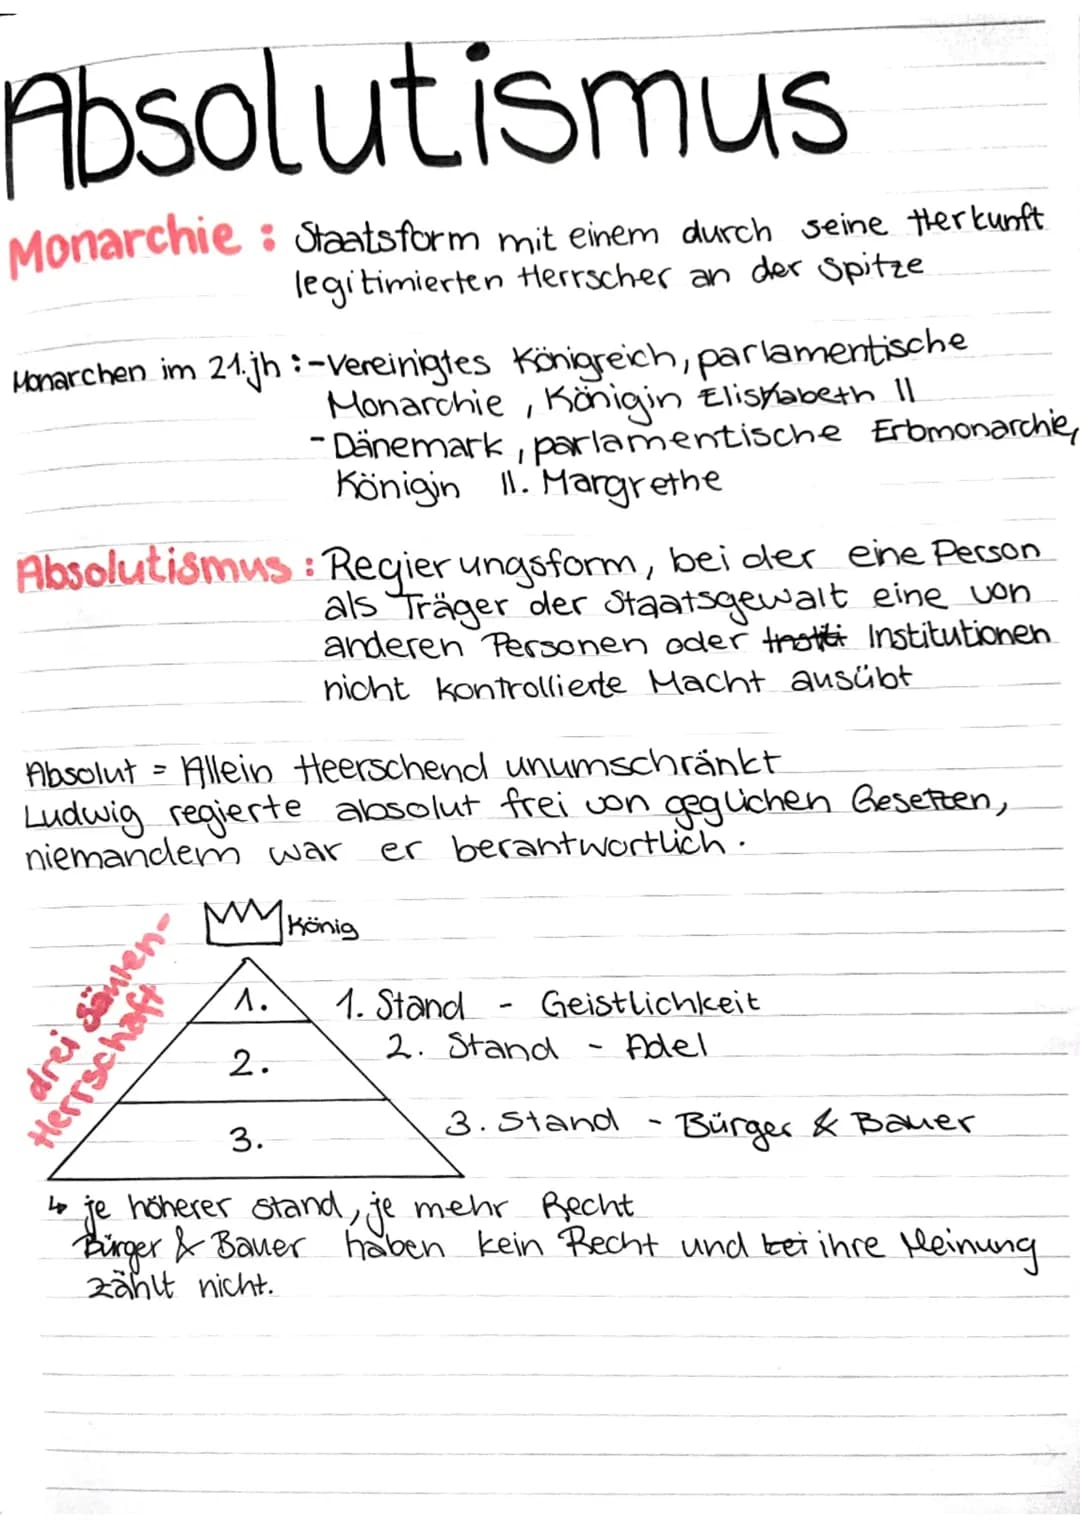 Absolutismus
Monarchie : Staatsform mit einem durch seine Herkunft
legitimierten Herrscher an der Spitze
Monarchen im 21.jh :-Vereinigtes Königreich, parlamentische
Monarchie, Königin Eliskabeth II
- Dänemark, parlamentische Erbmonarchie,
Königin II. Margrethe
Absolutismus : Regierungsform, bei der eine Person
als Träger der Staatsgewalt eine von
anderen Personen oder Institutionen
nicht kontrollierte Macht ausübt
Absolut = Allein Heerschend unumschränkt
Ludwig regierte absolut frei von geglichen Gesetzen,
niemandem war er berantwortlich.
König
drei Säulen-
Herrschaft
1.
1. Stand - Geistlichkeit
2. Stand - Adel
2.
3. Stand - Bürger & Bauer
3.
↳ je höherer Stand, je mehr Recht
Bürger & Bauer haben kein Recht und ihre Meinung
zählt nicht.